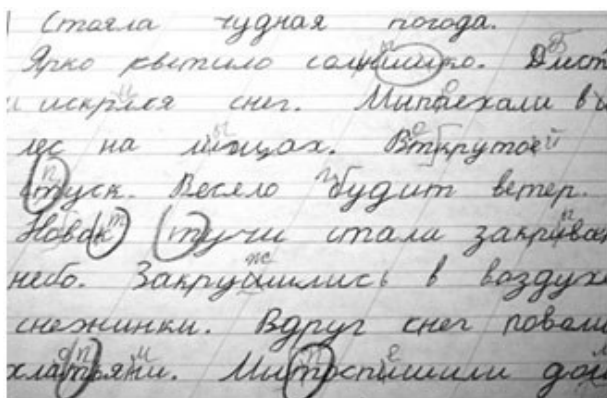 Стояла чудная погода.
Ярко кветило солнишко. Дист
искрлся снег. Мыпаехали в
лес на лищах. Вткрутой
стуск. Весело будит ветер.
Новак тучи стали закрыва
небо. Закрушились в воздух
снежинки. Вдруг снег повали
хлатьяни. Мытоспишили дом